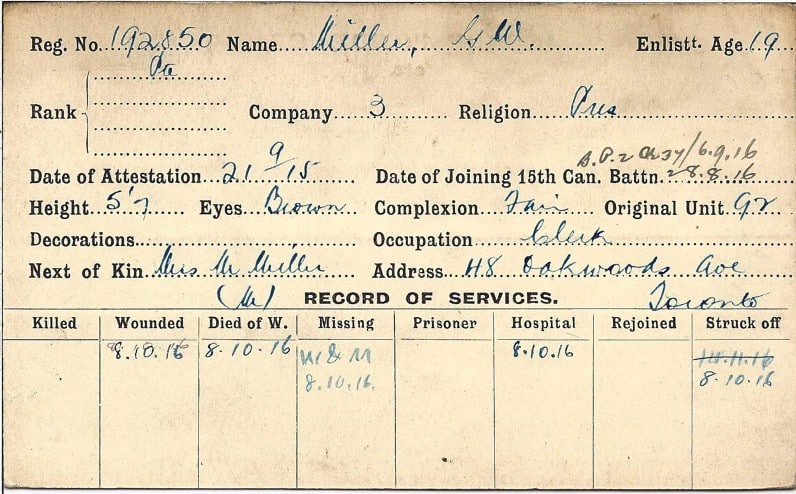 Reg. No. 192850 Name Miller, G W. Enlistt. Age 19
Pte
Rank Company 3 Religion Pres
B.P.2 O 37/6.9.16
Date of Attestation 21 9/15 Date of Joining 15th Can. Battn. 28.8.16
Height 5'7 Eyes Brown Complexion Fair Original Unit 92
Decorations Occupation Clerk
Next of Kin Mrs M Miller Address 48 Oakwoods Ave
(M) RECORD OF SERVICES. Toronto
Killed Wounded Died of W. Missing Prisoner Hospital Rejoined Struck off
8.10.16 8.10.16 W & M 8.10.16 14.11.16
8.10.16. 8.10.16